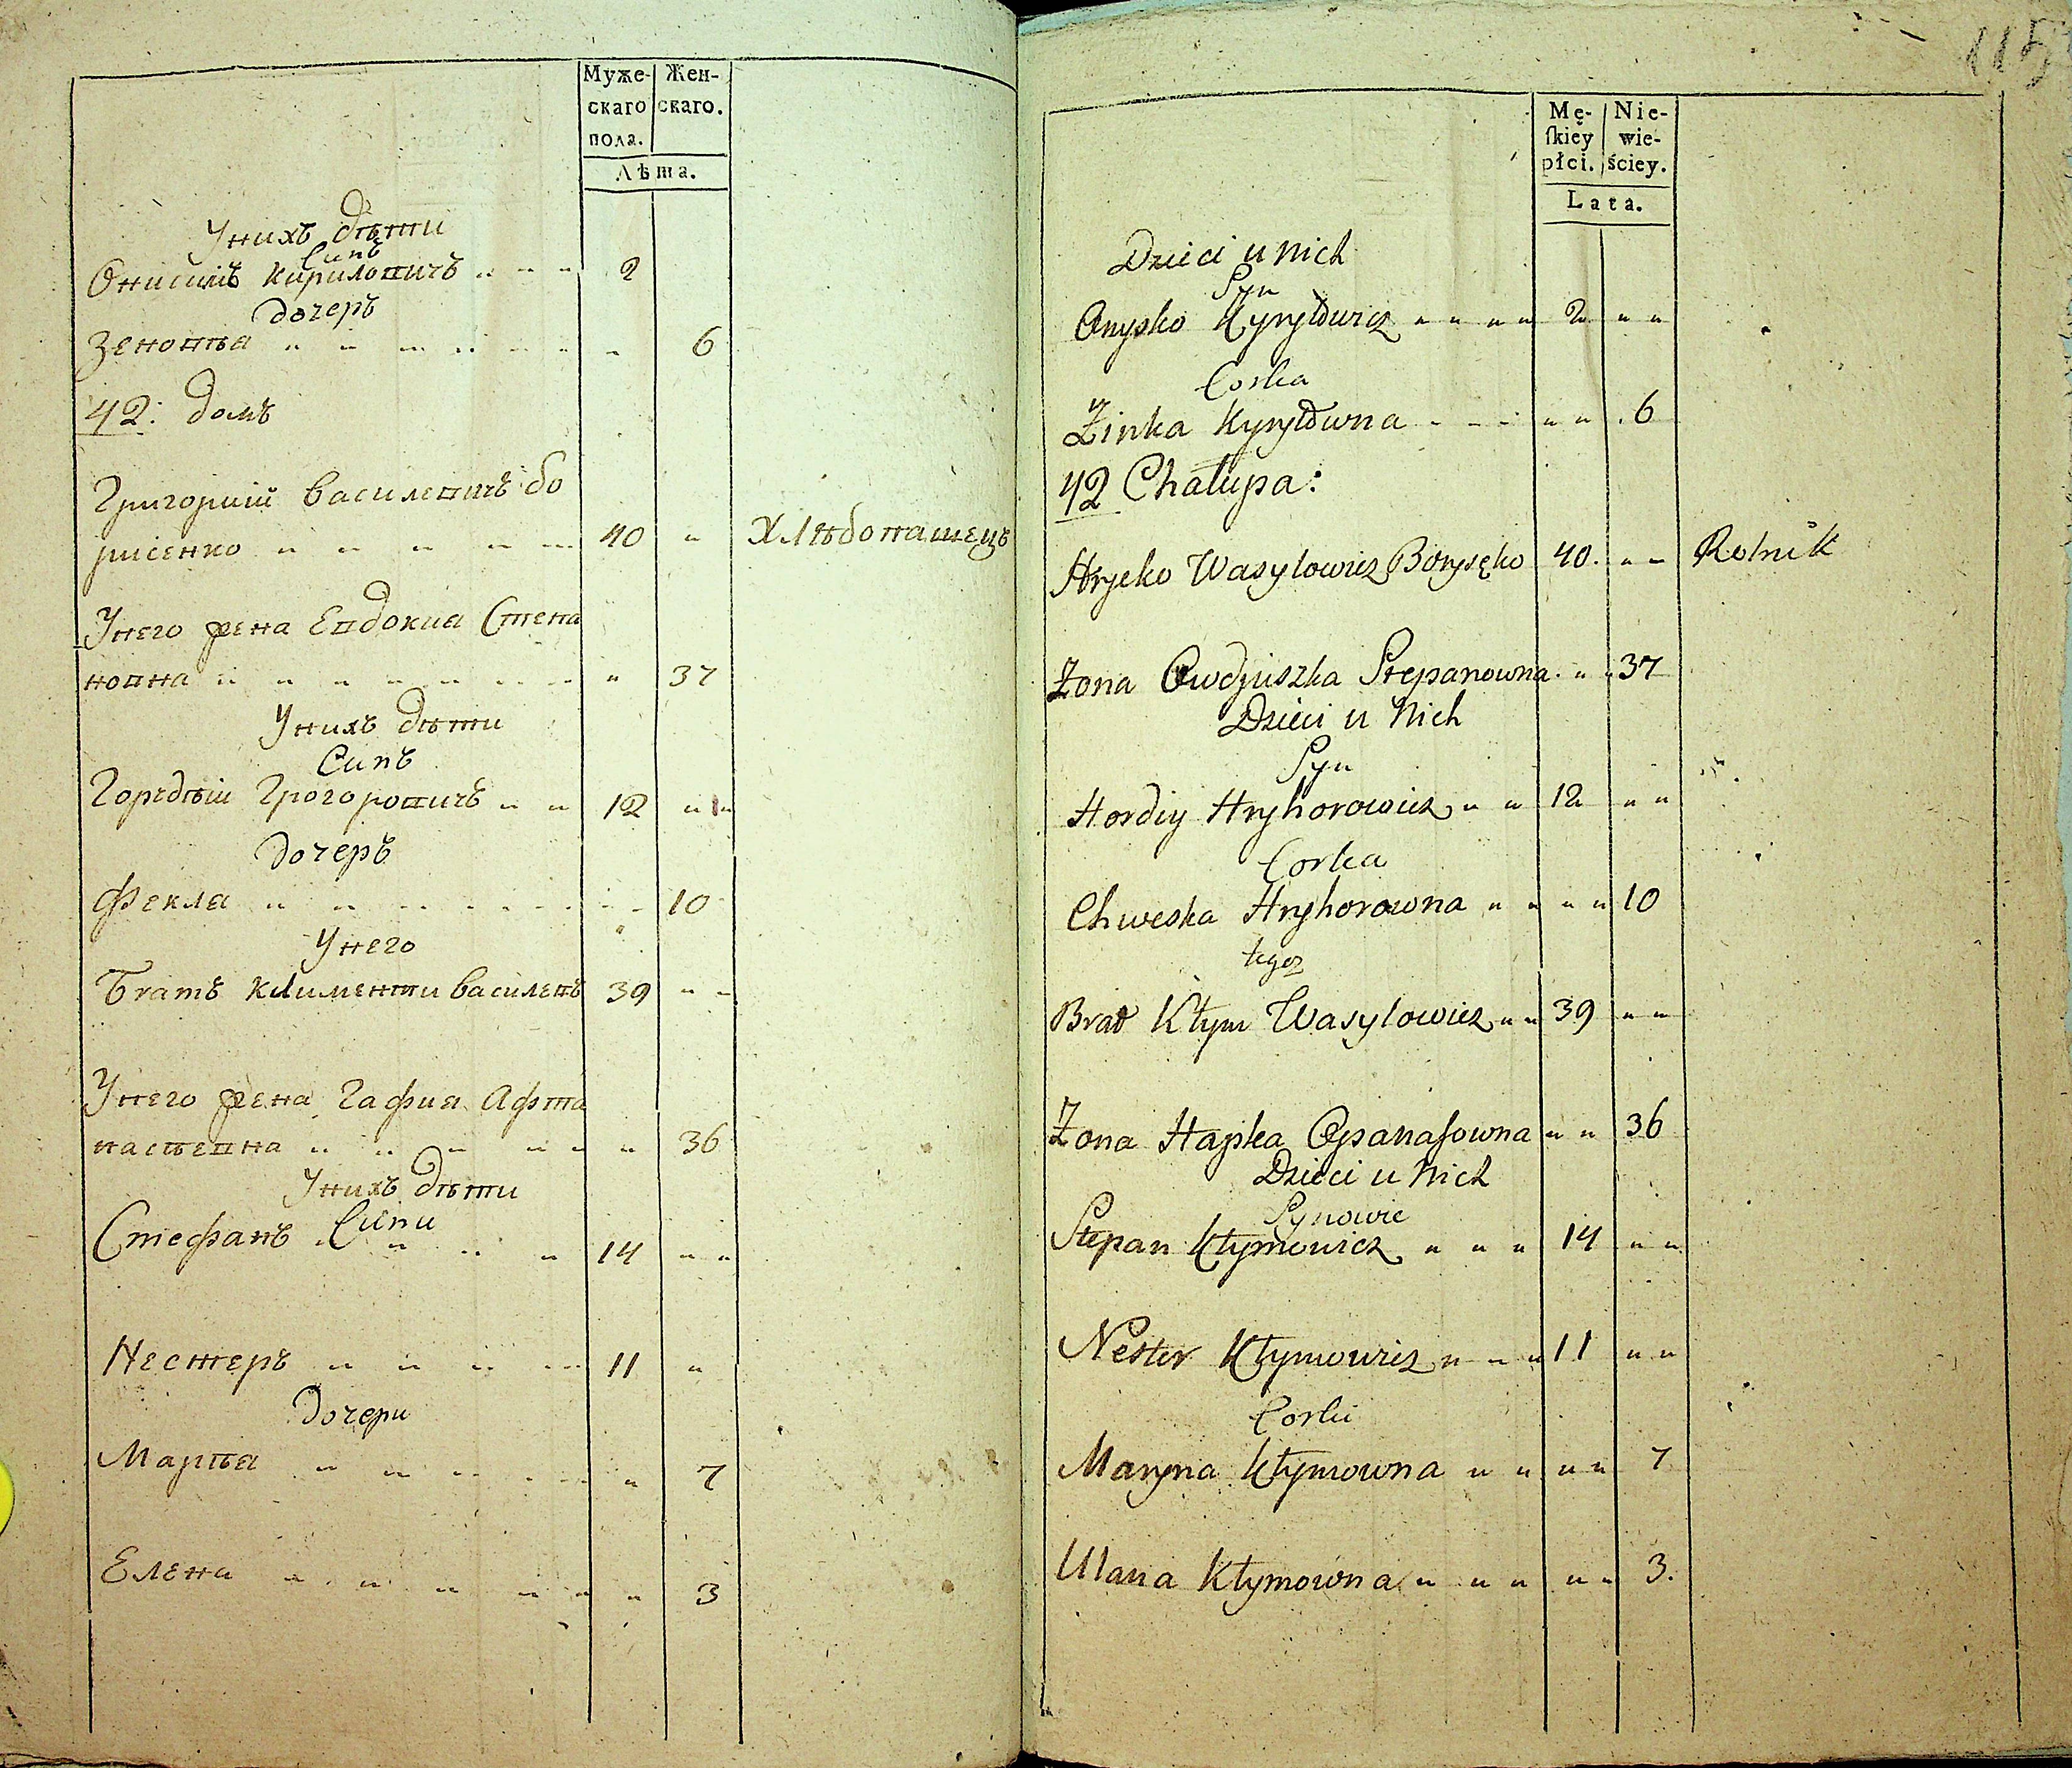 Муже-
скаго
пола.
Жен-
скаго.
Лѣта.
Унихъ дѣти
Синъ
Онисимъ Кириловичъ " " " 2
дочеръ
Зеновѣа " " " " " " " 6
42: домъ
Григорий Василевичъ Бо
рисенко " " " " " 40 " Хлѣбопашецъ
Унего жена Евдокиа Степа
новна " " " " " " " " 37
Унихъ дѣти
Синъ
Горѣдѣй Грогоровичъ " " 12 " "
дочеръ
Фекла " " " " " " " 10
Унего
Братъ Климентий Василевъ 39 " "
Унего жена Гафиа Афта
насьевна " " " " " " 36
Унихъ дѣти
Сини
Стефанъ " " " " 14 " "
Нестеръ " " " " 11 "
дочери
Марѣа " " " " " " 7
Елена " " " " " " 3
115
Mę-
ſkiey
płci.
Nie-
wie-
ściey.
Lata.
Dzieci u Nich
Syn
Onysko Kyryłowicz " " " " 2 " "
Corka
Zinka Kyryłowna " " " " " 6
42 Chałupa:
Hryćko Wasylowicz Borysęko 40. " " Rolnik
Żona Owdjuszka Stepanowna " " 37
Dzieci u Nich
Syn
Hordiy Hryhorowicz " " 12 " "
Corka
Chweska Hryhorowna " " " " 10
tegoz
Brat Kłym Wasylowicz " " 39 " "
Żona Hapka Opanasowna " " 36
Dzieci u Nich
Synowie
Stepan Kłymowicz " " " 14 " "
Nester Kłymowicz " " " 11 " "
Corki
Maryna Kłymowna " " " " 7
Ulana Kłymowna " " " " " 3.